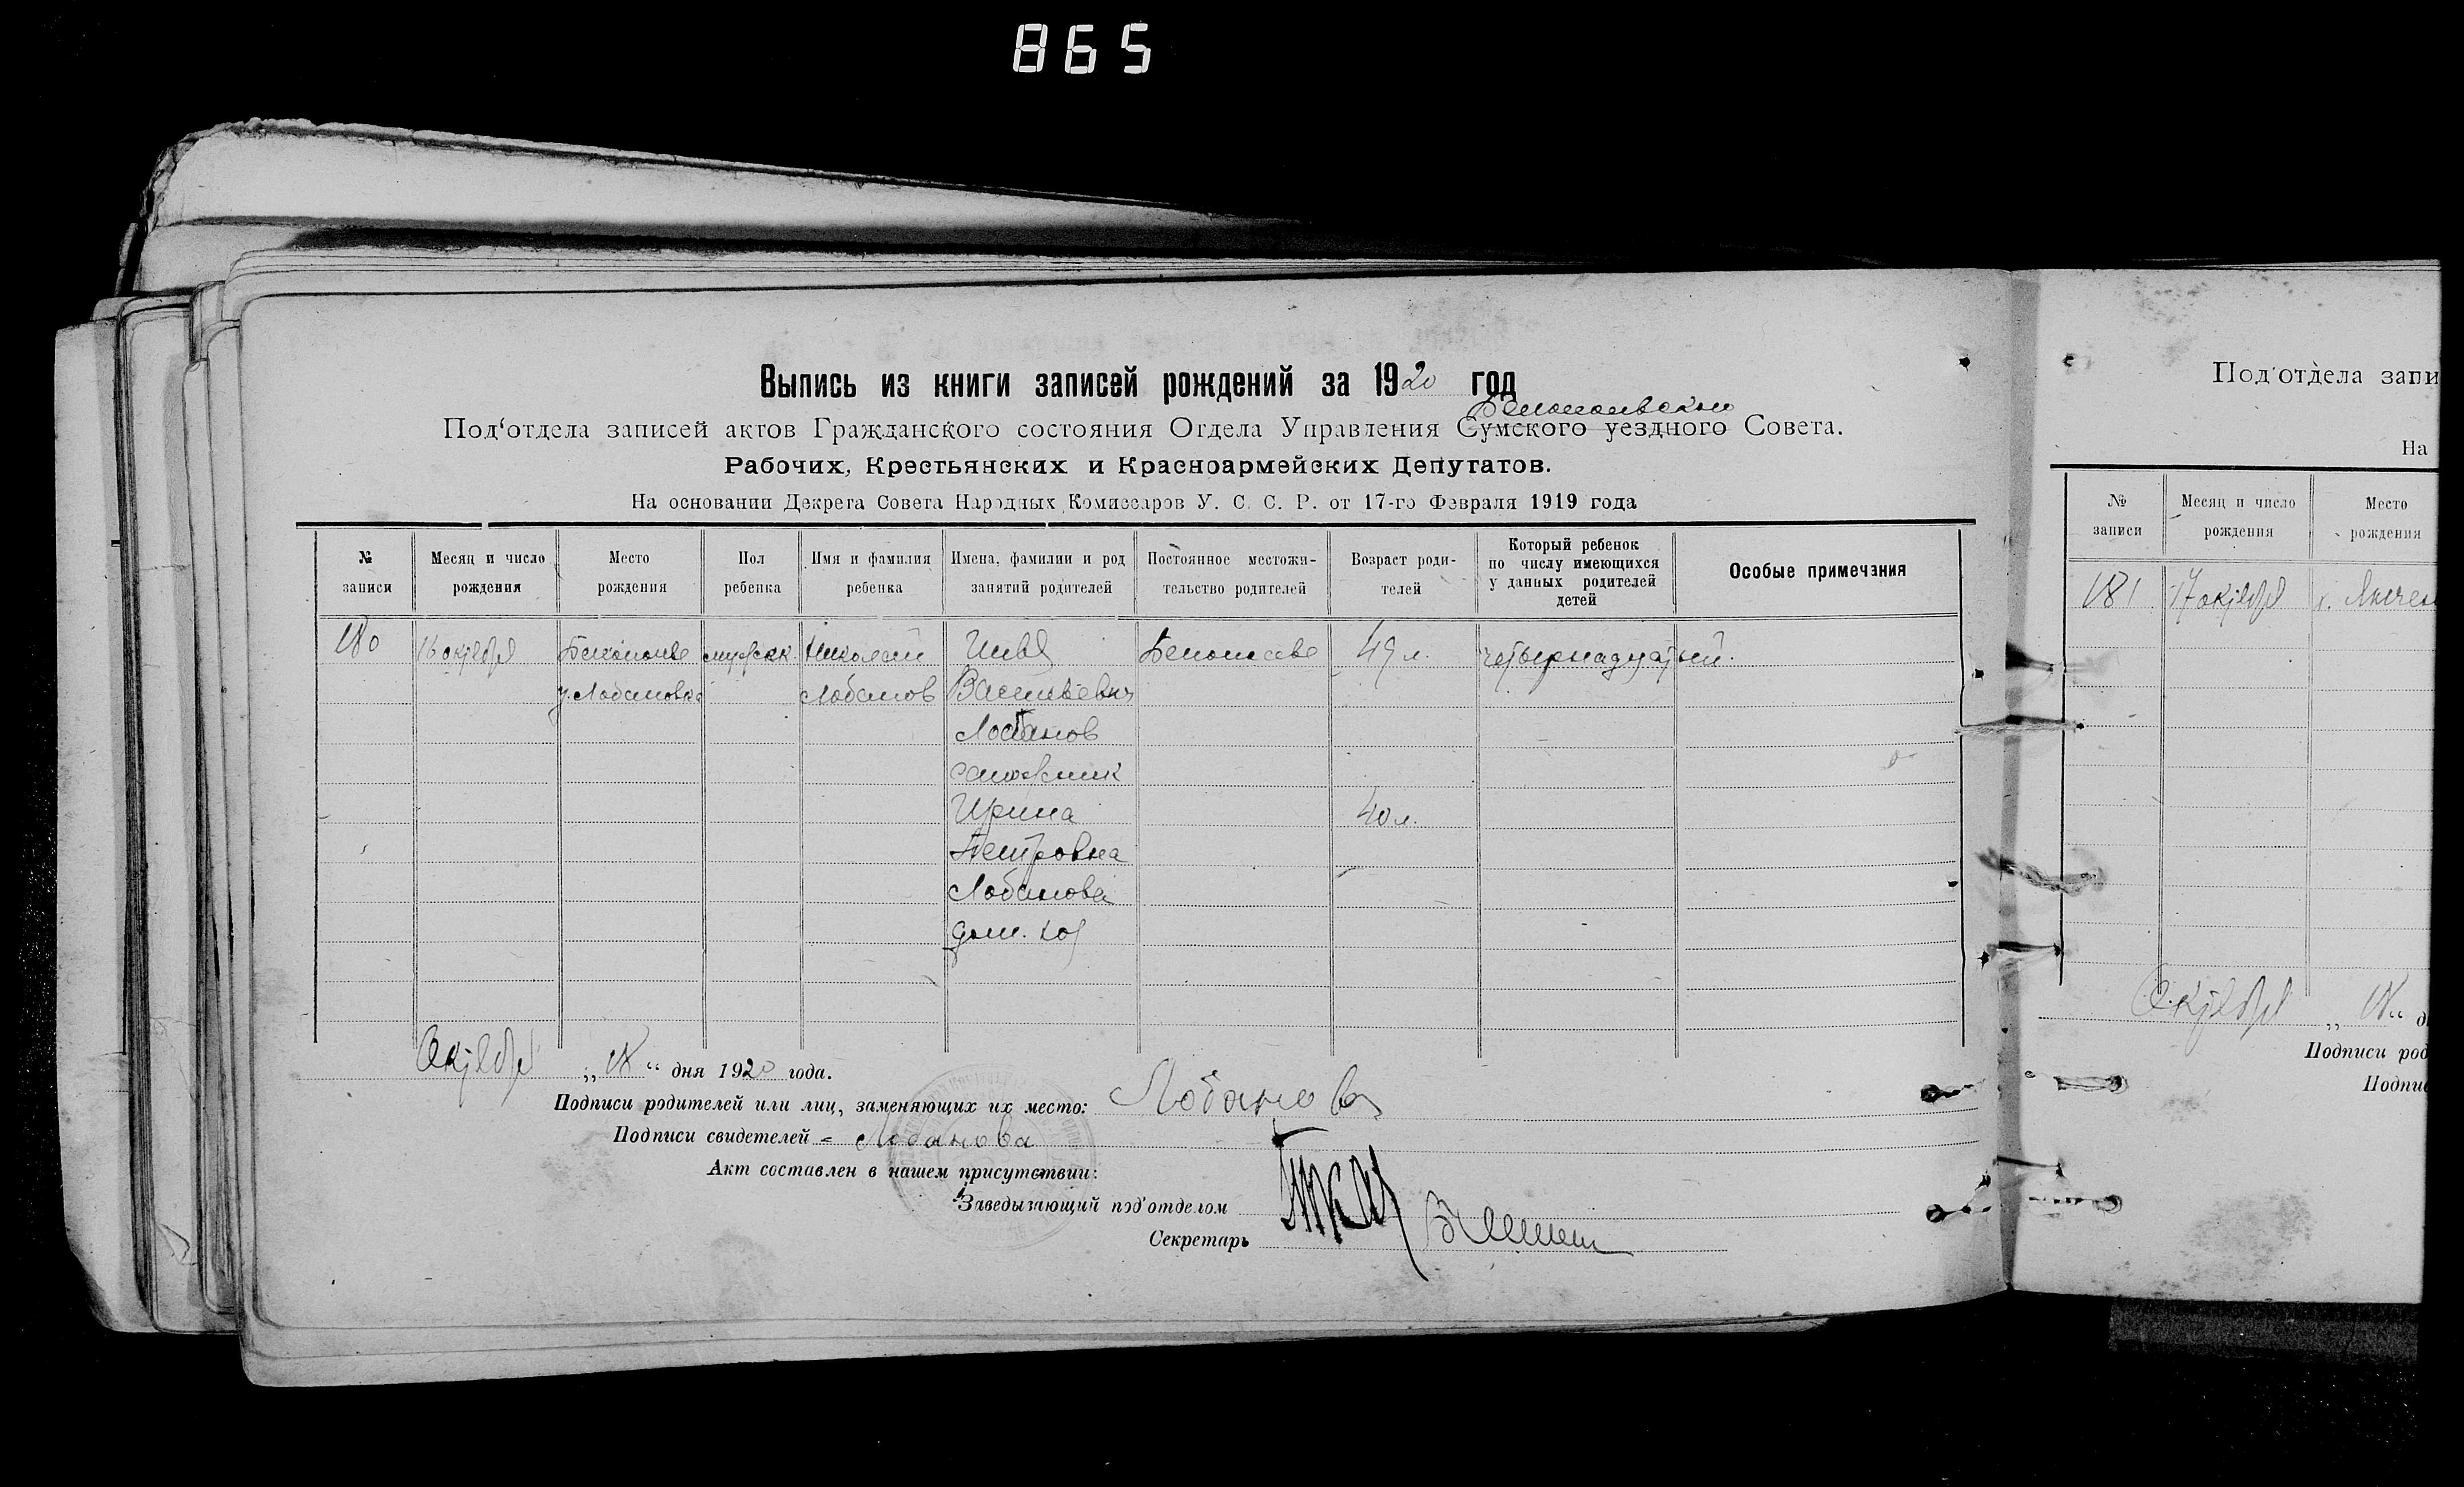 865
Выпись из книги записей рождений за 1920 год
Под‘отдела записей актов Гражданского состояния Отдела Управления Сумского уездного Совета.
Рабочих, Крестьянских и Красноармейских Депутатов.
На основании Декрета Совета Народных Комиссаров У. С. С. Р. от 17-го Февраля 1919 года
№ записи
Месяц и число рождения
Место рождения
Пол ребенка
Имя и фамилия ребенка
Имена, фамилии и род занятий родителей
Постоянное местожительство родителей
Возраст родителей
Который ребенок по числу имеющихся у данных родителей детей
Особые примечания
180 16 октебря мужск. Николай 49 л. четырнадцатый.
у. Лобановка Лобанов Васильевич
Лобанов
сапожник
Ирина 40 л.
Петровна
Лобанова
дом. хоз
Октебре „18“ дня 1920 года.
Подписи родителей или лиц, заменяющих их место: Лобанова
Подписи свидетелей - Лобанова
Акт составлен в нашем присутствии:
Заведывающий под‘отделом
Секретарь
Под‘отдела запи
На
№ записи
Месяц и число рождения
Место рождения
181 17 октебре
Октебре „18“ д
Подписи род
Подпи